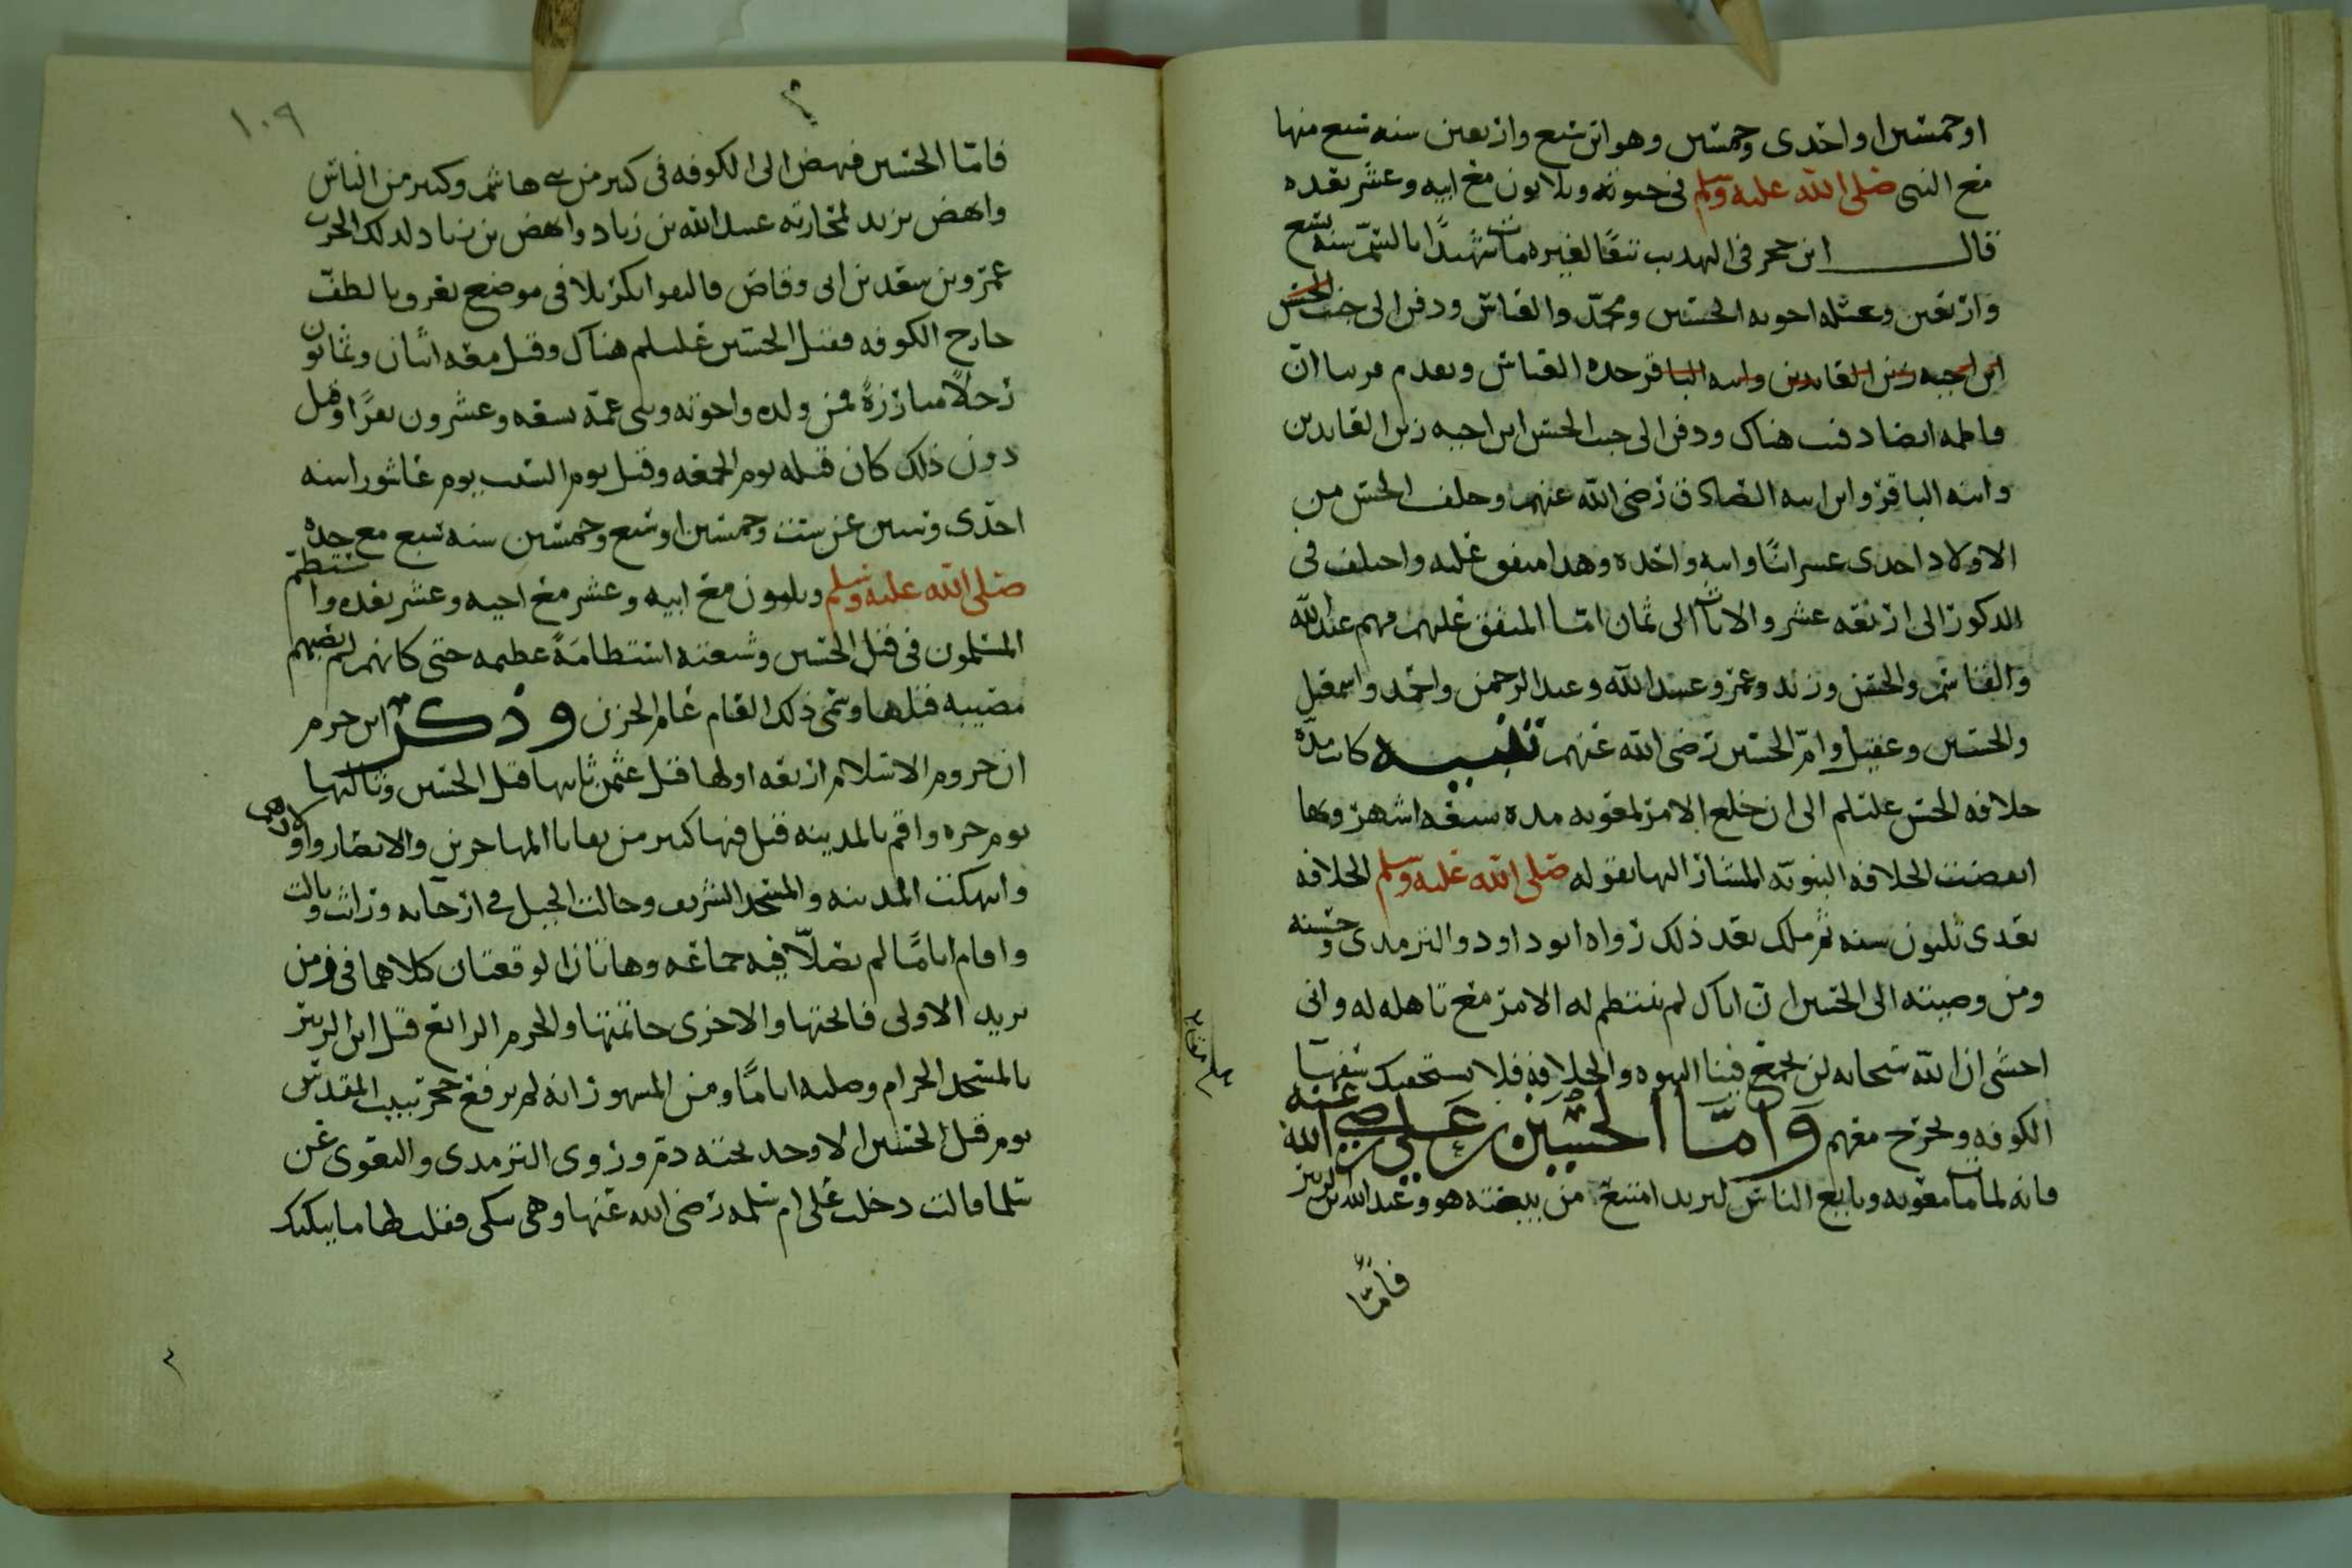 او خمسين او احدى وخمسين وهو ابن سبع واربعين سنه سبع منها
مع النبى صلى الله عليه وسلم فى حيوته وثلاثون مع ابيه وعشر بعده
قال ابن حجر فى التهذيب تبعًا لغيره مات شهيدًا بالسمّ سنه تسع
واربعين وغسله اخوته الحسين ومحمد والعباس ودفن الى جنب الحسن
ابن اخيه زين العابدين وابنه الباقر جده العباس وتقدم قريبا ان
فاطمه ايضا دفنت هناك ودفن الى جنب الحسن ابن اخيه زين العابدين
وابنه الباقر وابن ابنه الصادق رضى الله عنهم وخلف الحسن من
الاولاد احدى عشر ابنًا وابنه واحده وهذا متفق عليه واختلف فى
الذكور الى اربعه عشر والاناث الى ثمان امّا المتفق عليهم فهم عبد الله
والقاسم والحسن وزيد وعمر وعبيد الله وعبد الرحمن واحمد واسمعيل
والحسين وعقيل وامّ الحسين رضى الله عنهم تنبيه كانت مدّة
خلافه الحسن عليلم الى ان خلع الامر لمعويه مده سبعه اشهر وبها
انقضت الخلافه النبويّه المشار اليها بقوله صلى الله عليه وسلم الخلافه
بعدى ثلثون سنه ثم ملك بعد ذلك رواه ابو داود والترمذى وحسنه
ومن وصيته الى الحسين ان اباك لم ينتظم له الامر مع تاهله له وانى
اخشى ان الله سبحانه لن يجمع فينا النبوه والخلافه فلا يستخفنك سفهاء
الكوفه وتخرج معهم وامّا الحسين بن على رضى الله عنه
فانه لما مات معويه وبايع الناس ليزيد امتنع من بيعته هو وعبد الله بن الزبير
فامّا
١٠٩
فامّا الحسين فنهض الى الكوفه فى كثير من بنى هاشم وكثير من الناس
وانهض يزيد لمحاربته عبيد الله بن زياد وانهض بن زياد لذلك الحرب
عمرو بن سعد بن ابى وقاص فالتقوا بكربلا فى موضع يعرف بالطفّ
خارج الكوفه فقتل الحسين عليلم هناك وقتل معه اثنان وثمانون
رجلًا مبارزةً فمن ولده واخوته وبنى عمّه تسعه وعشرون نفرًا وقيل
دون ذلك كان قتله يوم الجمعه وقيل يوم السبت يوم عاشورا سنه
احدى وستين عن ست وخمسين او سبع وخمسين سنه سبع مع جده
صلى الله عليه وسلم وثلثون مع ابيه وعشر مع اخيه وعشر بعده واستعظم
المسلمون فى قتل الحسين وشيعته استعظامةً عظيمه حتى كانهم لم تصبهم
مصيبه قبلها وسمّى ذلك العام عام الحزن وذكر ابن حزم
ان خروم الاسلام اربعه اولها قتل عثمن ثانيها قتل الحسين وثالثها
يوم حره واقم بالمدينه قتل فيها كثير من بقايا المهاجرين والانصار واولادهم
وانتهكت المدينه والمسجد الشريف وجالت الخيل فى ارجايه وراثت وبالت
واقام ايامًا لم يصلّا فيه جماعه وهاتان الوقعتان كلاهما فى زمن
يزيد الاولى فاتحتها والاخرى خاتمتها والخرم الرابع قتل ابن الزبير
بالمسجد الحرام وصلبه ايامًا ومن المشهور انه لم يرفع حجر ببيت المقدس
يوم قتل الحسين الا وجد تحته دم وروى الترمذى والبغوى عن
سلما قالت دخلت على ام سلمه رضى الله عنها وهى تبكى فقلت لها ما يبكيك